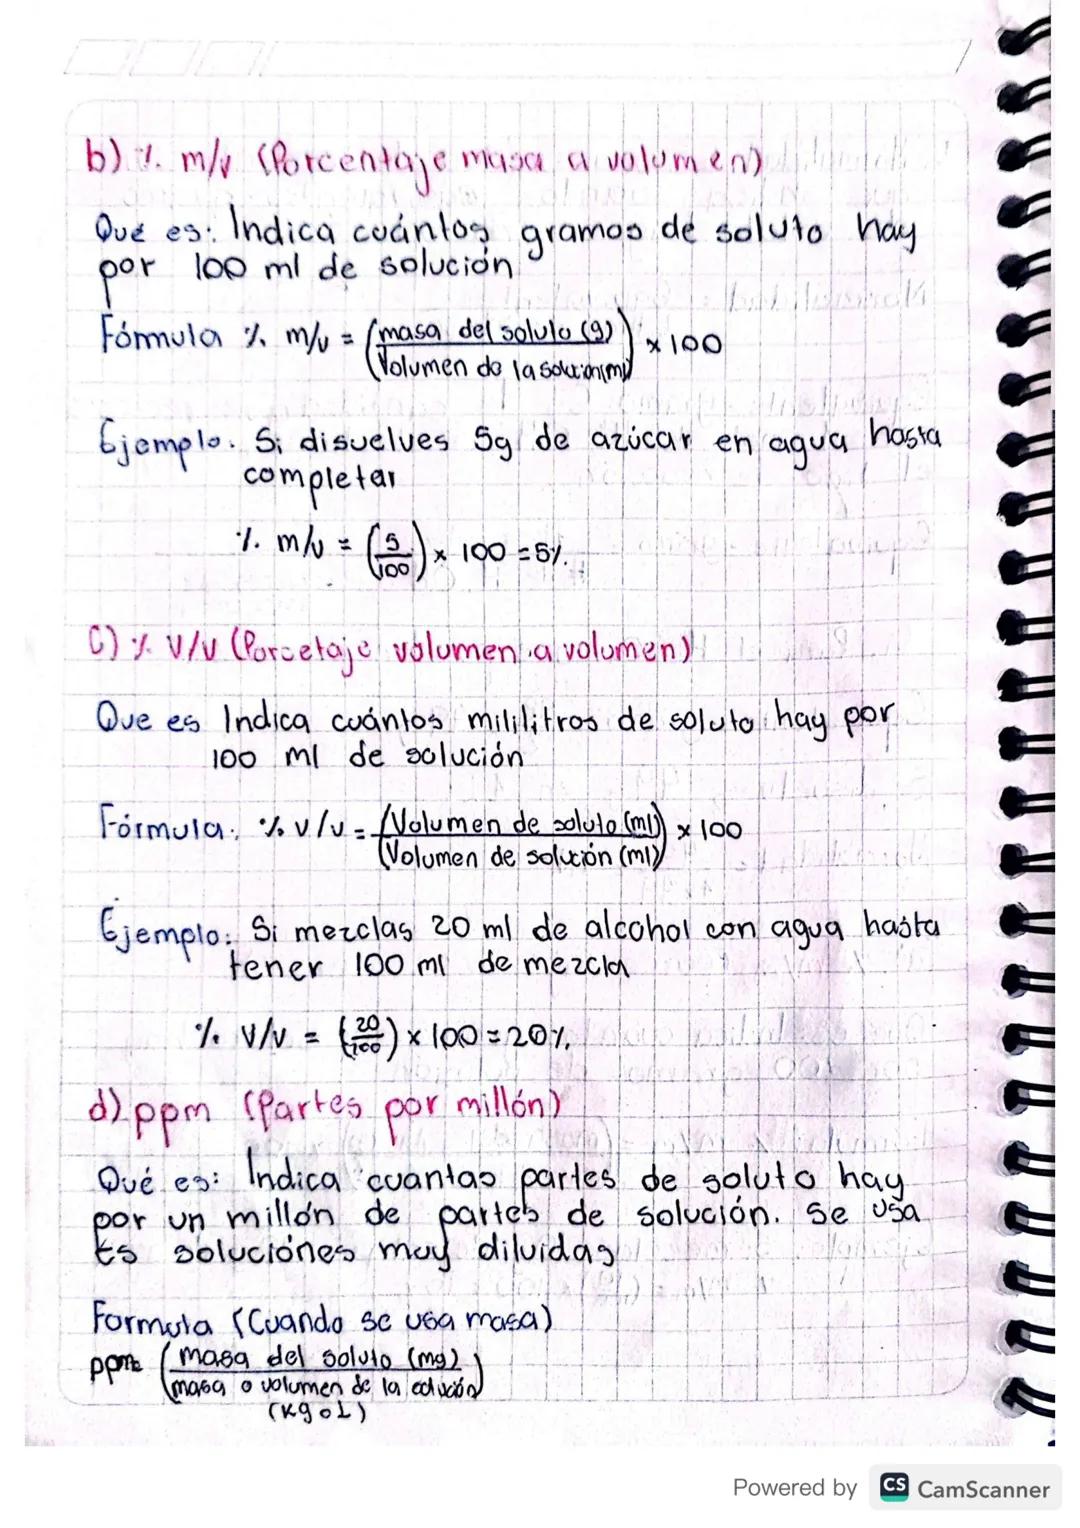 b) % m/v (Porcentaje masa a volumen)
Qué es: Indica cuántos gramos de soluto hay
por 100 ml de solución
Fórmula % m/v = (masa del soluto (g) / Volumen de la solución (ml)) x 100
Ejemplo. Si disuelves 5g de azúcar en agua hasta
completar
% m/v = (5/100) x 100 = 5%.
C) % V/V (Porcetaje volumen a volumen)
Que es Indica cuántos mililitros de soluto hay por
100 ml de solución
Fórmula: % v/v = (Volumen de soluto (ml) / Volumen de solución (ml)) x 100
Ejemplo: Si mezclas 20 ml de alcohol con agua hasta
tener 100 ml de mezcla
% V/V = (20/100) x 100 = 20%.
d) ppm (Partes por millón)
Qué es: Indica cuantas partes de soluto hay
por un millón de partes de solución. Se usa
Es soluciónes muy diluidas
Formula (Cuando se usa masa)
ppm = (masa del soluto (mg) / masa o volumen de la solución)
(Kg o L)
Powered by CS CamScanner